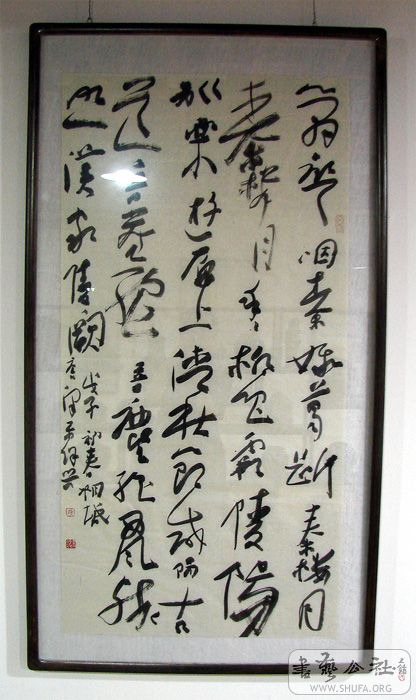 簫聲咽秦娥夢斷秦樓月
秦樓月年年柳色霸陵傷
別樂遊原上清秋節咸陽古
道音塵絕音塵絕西風殘
照漢家陵闕
戊子初春
書藝公社
WWW.SHUFA.ORG